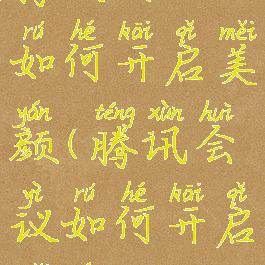 rú hé kāi qǐ měi
如何开启美
yán téng xùn huì
颜(腾讯会
yì rú hé kāi qǐ
议如何开启